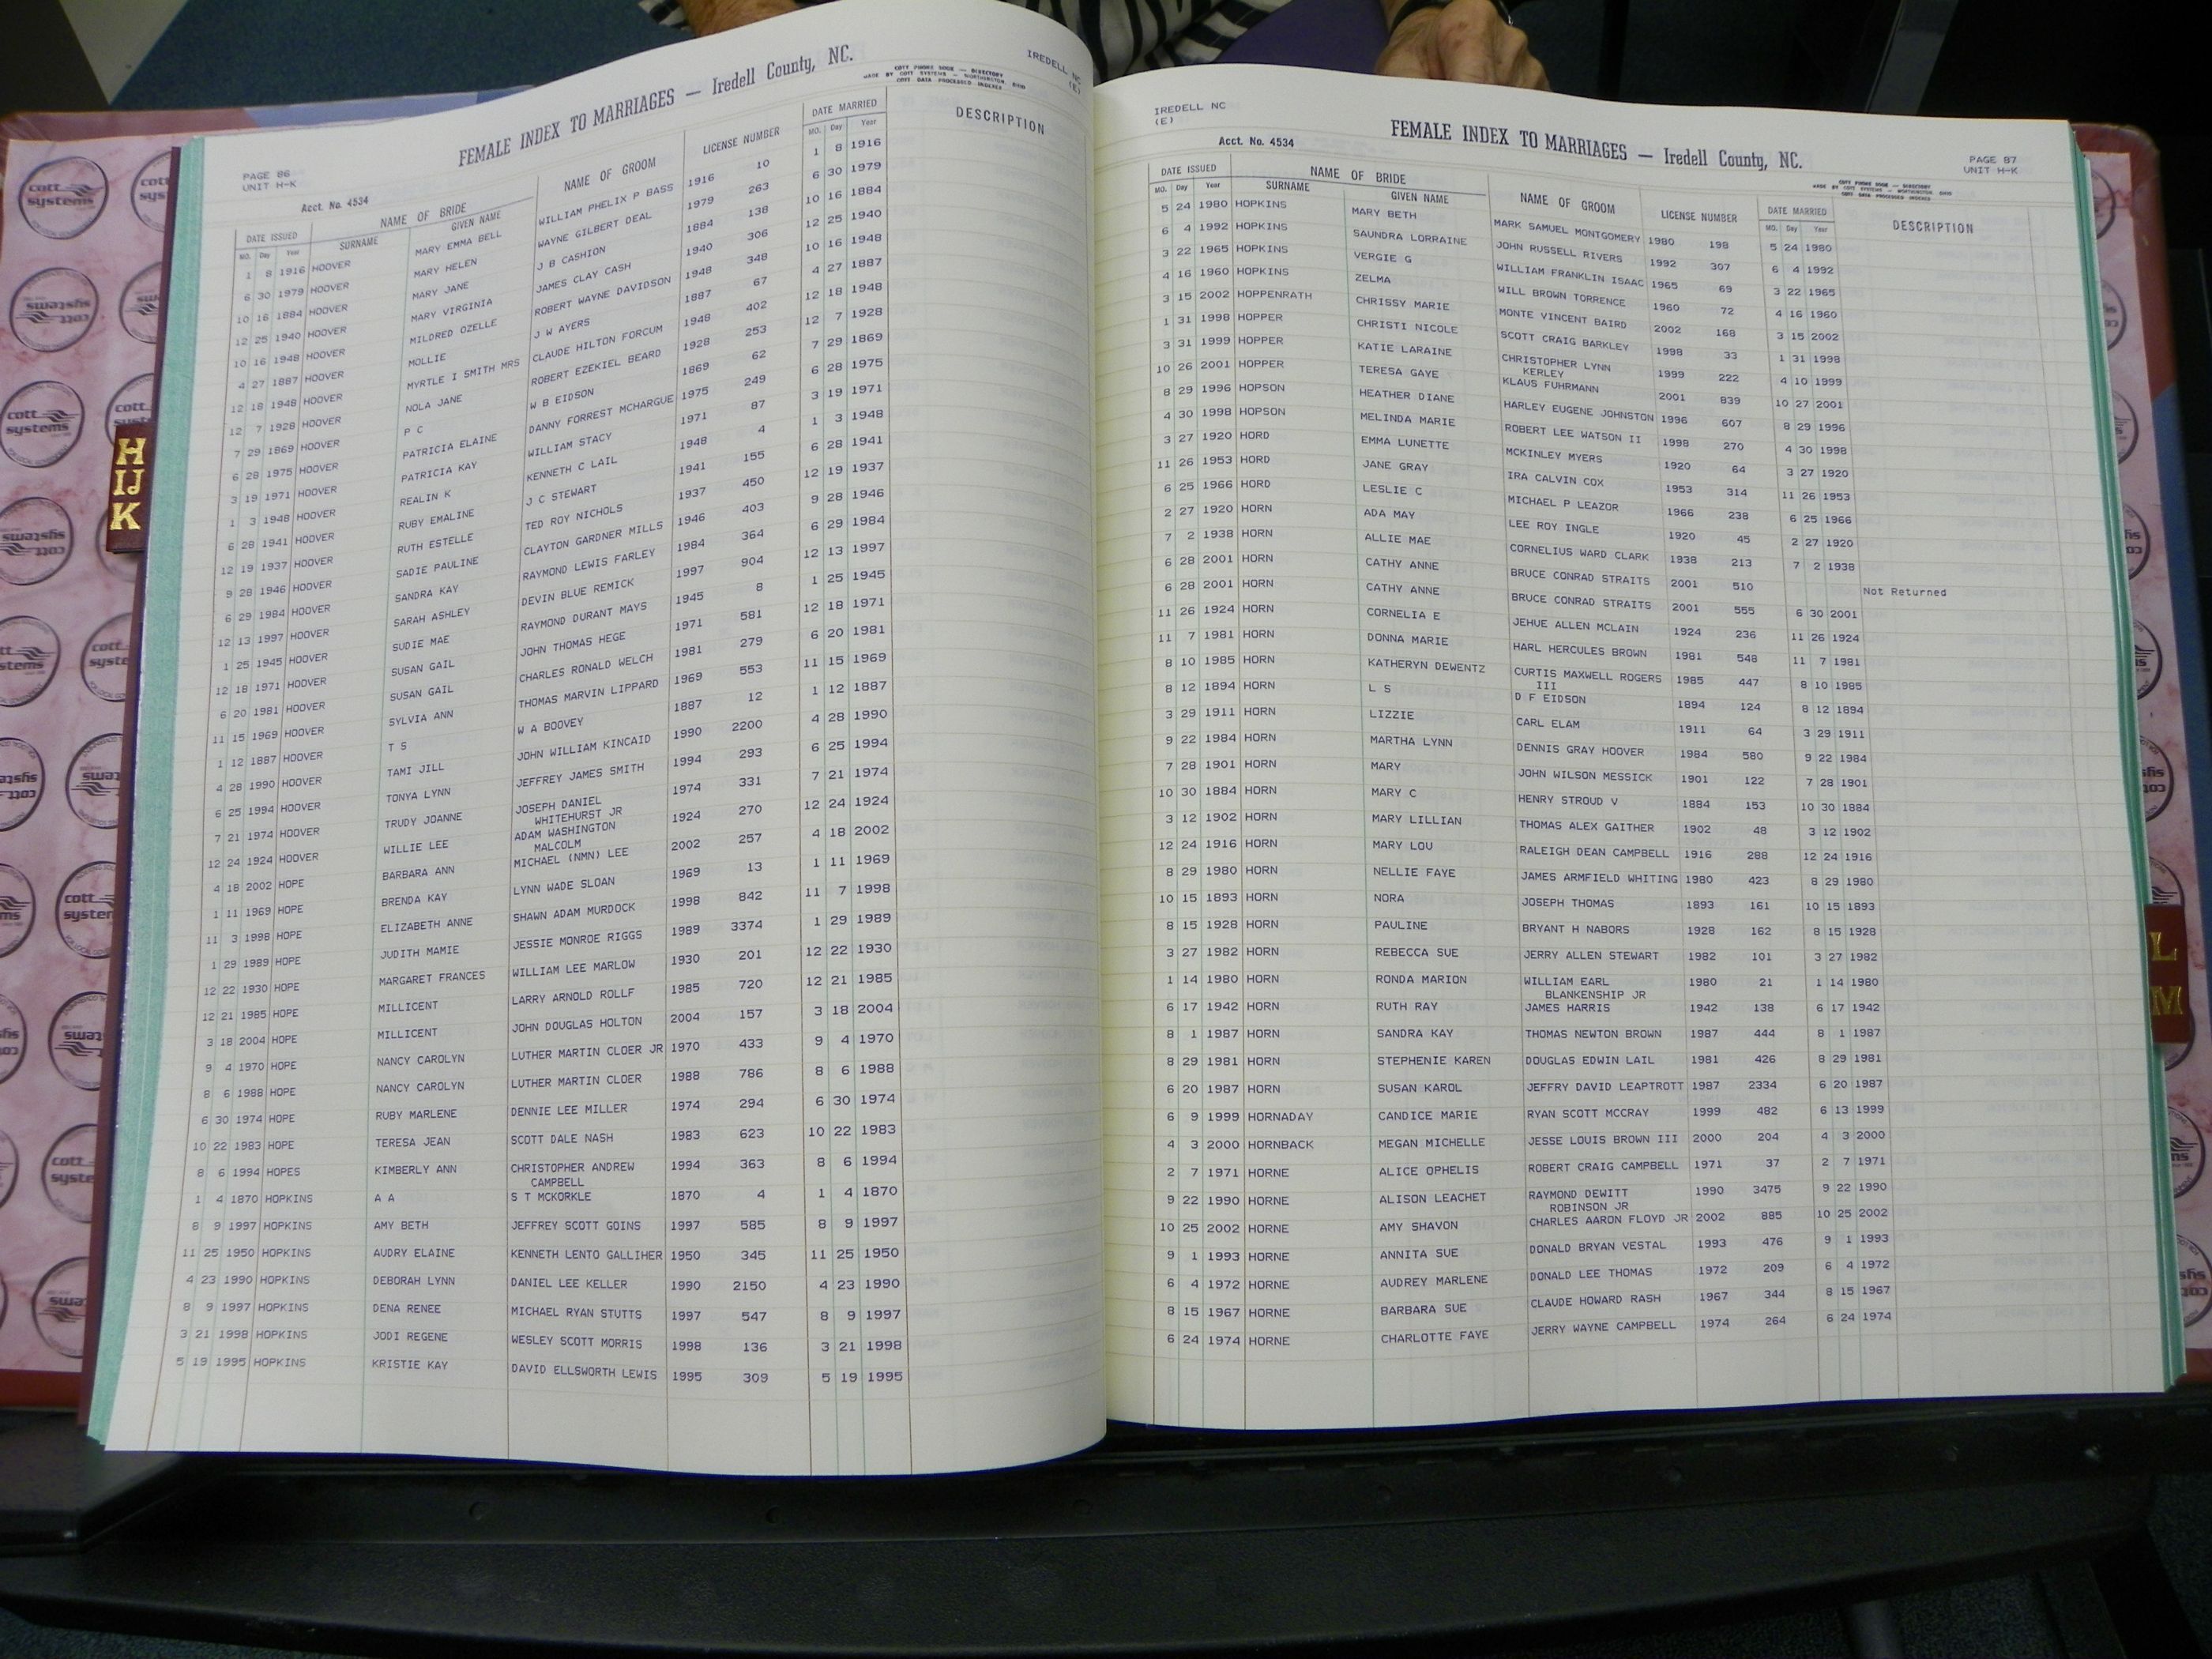 PAGE 86
UNIT H-K
Acct. No. 4534
FEMALE INDEX TO MARRIAGES — Iredell County, NC.
COTT PHONE BOOK — DIRECTORY
MADE BY COTT SYSTEMS — WORTHINGTON, OHIO
COTT DATA PROCESSED INDEXES
IREDELL NC
(E)
DATE ISSUED NAME OF BRIDE NAME OF GROOM LICENSE NUMBER DATE MARRIED DESCRIPTION
MO. Day Year SURNAME GIVEN NAME MO. Day Year
1 8 1916 HOOVER MARY EMMA BELL WILLIAM PHELIX P BASS 1916 10 1 8 1916
6 30 1979 HOOVER MARY HELEN WAYNE GILBERT DEAL 1979 263 6 30 1979
10 16 1884 HOOVER MARY JANE J B CASHION 1884 138 10 16 1884
12 25 1940 HOOVER MARY VIRGINIA JAMES CLAY CASH 1940 306 12 25 1940
10 16 1948 HOOVER MILDRED OZELLE ROBERT WAYNE DAVIDSON 1948 348 10 16 1948
4 27 1887 HOOVER MOLLIE J W AYERS 1887 67 4 27 1887
12 18 1948 HOOVER MYRTLE I SMITH MRS CLAUDE HILTON FORCUM 1948 402 12 18 1948
12 7 1928 HOOVER NOLA JANE ROBERT EZEKIEL BEARD 1928 253 12 7 1928
7 29 1869 HOOVER P C W B EIDSON 1869 62 7 29 1869
6 28 1975 HOOVER PATRICIA ELAINE DANNY FORREST MCHARGUE 1975 249 6 28 1975
3 19 1971 HOOVER PATRICIA KAY WILLIAM STACY 1971 87 3 19 1971
1 3 1948 HOOVER REALIN K KENNETH C LAIL 1948 4 1 3 1948
6 28 1941 HOOVER RUBY EMALINE J C STEWART 1941 155 6 28 1941
12 19 1937 HOOVER RUTH ESTELLE TED ROY NICHOLS 1937 450 12 19 1937
9 28 1946 HOOVER SADIE PAULINE CLAYTON GARDNER MILLS 1946 403 9 28 1946
6 29 1984 HOOVER SANDRA KAY RAYMOND LEWIS FARLEY 1984 364 6 29 1984
12 13 1997 HOOVER SARAH ASHLEY DEVIN BLUE REMICK 1997 904 12 13 1997
1 25 1945 HOOVER SUDIE MAE RAYMOND DURANT MAYS 1945 8 1 25 1945
12 18 1971 HOOVER SUSAN GAIL JOHN THOMAS HEGE 1971 581 12 18 1971
6 20 1981 HOOVER SUSAN GAIL CHARLES RONALD WELCH 1981 279 6 20 1981
11 15 1969 HOOVER SYLVIA ANN THOMAS MARVIN LIPPARD 1969 553 11 15 1969
1 12 1887 HOOVER T S W A BOOVEY 1887 12 1 12 1887
4 28 1990 HOOVER TAMI JILL JOHN WILLIAM KINCAID 1990 2200 4 28 1990
6 25 1994 HOOVER TONYA LYNN JEFFREY JAMES SMITH 1994 293 6 25 1994
7 21 1974 HOOVER TRUDY JOANNE JOSEPH DANIEL 1974 331 7 21 1974
WHITEHURST JR
12 24 1924 HOOVER WILLIE LEE ADAM WASHINGTON 1924 270 12 24 1924
MALCOLM
4 18 2002 HOPE BARBARA ANN MICHAEL (NMN) LEE 2002 257 4 18 2002
1 11 1969 HOPE BRENDA KAY LYNN WADE SLOAN 1969 13 1 11 1969
11 3 1998 HOPE ELIZABETH ANNE SHAWN ADAM MURDOCK 1998 842 11 7 1998
1 29 1989 HOPE JUDITH MAMIE JESSIE MONROE RIGGS 1989 3374 1 29 1989
12 22 1930 HOPE MARGARET FRANCES WILLIAM LEE MARLOW 1930 201 12 22 1930
12 21 1985 HOPE MILLICENT LARRY ARNOLD ROLLF 1985 720 12 21 1985
3 18 2004 HOPE MILLICENT JOHN DOUGLAS HOLTON 2004 157 3 18 2004
9 4 1970 HOPE NANCY CAROLYN LUTHER MARTIN CLOER JR 1970 433 9 4 1970
8 6 1988 HOPE NANCY CAROLYN LUTHER MARTIN CLOER 1988 786 8 6 1988
6 30 1974 HOPE RUBY MARLENE DENNIE LEE MILLER 1974 294 6 30 1974
10 22 1983 HOPE TERESA JEAN SCOTT DALE NASH 1983 623 10 22 1983
8 6 1994 HOPES KIMBERLY ANN CHRISTOPHER ANDREW 1994 363 8 6 1994
CAMPBELL
1 4 1870 HOPKINS A A S T MCKORKLE 1870 4 1 4 1870
8 9 1997 HOPKINS AMY BETH JEFFREY SCOTT GOINS 1997 585 8 9 1997
11 25 1950 HOPKINS AUDRY ELAINE KENNETH LENTO GALLIHER 1950 345 11 25 1950
4 23 1990 HOPKINS DEBORAH LYNN DANIEL LEE KELLER 1990 2150 4 23 1990
8 9 1997 HOPKINS DENA RENEE MICHAEL RYAN STUTTS 1997 547 8 9 1997
3 21 1998 HOPKINS JODI REGENE WESLEY SCOTT MORRIS 1998 136 3 21 1998
5 19 1995 HOPKINS KRISTIE KAY DAVID ELLSWORTH LEWIS 1995 309 5 19 1995
IREDELL NC
(E)
Acct. No. 4534
FEMALE INDEX TO MARRIAGES — Iredell County, NC.
PAGE 87
UNIT H-K
COTT PHONE BOOK — DIRECTORY
MADE BY COTT SYSTEMS — WORTHINGTON, OHIO
COTT DATA PROCESSED INDEXES
DATE ISSUED NAME OF BRIDE NAME OF GROOM LICENSE NUMBER DATE MARRIED DESCRIPTION
MO. Day Year SURNAME GIVEN NAME MO. Day Year
5 24 1980 HOPKINS MARY BETH MARK SAMUEL MONTGOMERY 1980 198 5 24 1980
6 4 1992 HOPKINS SAUNDRA LORRAINE JOHN RUSSELL RIVERS 1992 307 6 4 1992
3 22 1965 HOPKINS VERGIE G WILLIAM FRANKLIN ISAAC 1965 69 3 22 1965
4 16 1960 HOPKINS ZELMA WILL BROWN TORRENCE 1960 72 4 16 1960
3 15 2002 HOPPENRATH CHRISSY MARIE MONTE VINCENT BAIRD 2002 168 3 15 2002
1 31 1998 HOPPER CHRISTI NICOLE SCOTT CRAIG BARKLEY 1998 33 1 31 1998
3 31 1999 HOPPER KATIE LARAINE CHRISTOPHER LYNN 1999 222 4 10 1999
KERLEY
10 26 2001 HOPPER TERESA GAYE KLAUS FUHRMANN 2001 839 10 27 2001
8 29 1996 HOPSON HEATHER DIANE HARLEY EUGENE JOHNSTON 1996 607 8 29 1996
4 30 1998 HOPSON MELINDA MARIE ROBERT LEE WATSON II 1998 270 4 30 1998
3 27 1920 HORD EMMA LUNETTE MCKINLEY MYERS 1920 64 3 27 1920
11 26 1953 HORD JANE GRAY IRA CALVIN COX 1953 314 11 26 1953
6 25 1966 HORD LESLIE C MICHAEL P LEAZOR 1966 238 6 25 1966
2 27 1920 HORN ADA MAY LEE ROY INGLE 1920 45 2 27 1920
7 2 1938 HORN ALLIE MAE CORNELIUS WARD CLARK 1938 213 7 2 1938
6 28 2001 HORN CATHY ANNE BRUCE CONRAD STRAITS 2001 510 Not Returned
6 28 2001 HORN CATHY ANNE BRUCE CONRAD STRAITS 2001 555 6 30 2001
11 26 1924 HORN CORNELIA E JEHUE ALLEN MCLAIN 1924 236 11 26 1924
11 7 1981 HORN DONNA MARIE HARL HERCULES BROWN 1981 548 11 7 1981
8 10 1985 HORN KATHERYN DEWENTZ CURTIS MAXWELL ROGERS 1985 447 8 10 1985
III
8 12 1894 HORN L S D F EIDSON 1894 124 8 12 1894
3 29 1911 HORN LIZZIE CARL ELAM 1911 64 3 29 1911
9 22 1984 HORN MARTHA LYNN DENNIS GRAY HOOVER 1984 580 9 22 1984
7 28 1901 HORN MARY JOHN WILSON MESSICK 1901 122 7 28 1901
10 30 1884 HORN MARY C HENRY STROUD V 1884 153 10 30 1884
3 12 1902 HORN MARY LILLIAN THOMAS ALEX GAITHER 1902 48 3 12 1902
12 24 1916 HORN MARY LOU RALEIGH DEAN CAMPBELL 1916 288 12 24 1916
8 29 1980 HORN NELLIE FAYE JAMES ARMFIELD WHITING 1980 423 8 29 1980
10 15 1893 HORN NORA JOSEPH THOMAS 1893 161 10 15 1893
8 15 1928 HORN PAULINE BRYANT H NABORS 1928 162 8 15 1928
3 27 1982 HORN REBECCA SUE JERRY ALLEN STEWART 1982 101 3 27 1982
1 14 1980 HORN RONDA MARION WILLIAM EARL 1980 21 1 14 1980
BLANKENSHIP JR
6 17 1942 HORN RUTH RAY JAMES HARRIS 1942 138 6 17 1942
8 1 1987 HORN SANDRA KAY THOMAS NEWTON BROWN 1987 444 8 1 1987
8 29 1981 HORN STEPHENIE KAREN DOUGLAS EDWIN LAIL 1981 426 8 29 1981
6 20 1987 HORN SUSAN KAROL JEFFRY DAVID LEAPTROTT 1987 2334 6 20 1987
6 9 1999 HORNADAY CANDICE MARIE RYAN SCOTT MCCRAY 1999 482 6 13 1999
4 3 2000 HORNBACK MEGAN MICHELLE JESSE LOUIS BROWN III 2000 204 4 3 2000
2 7 1971 HORNE ALICE OPHELIS ROBERT CRAIG CAMPBELL 1971 37 2 7 1971
9 22 1990 HORNE ALISON LEACHET RAYMOND DEWITT 1990 3475 9 22 1990
ROBINSON JR
10 25 2002 HORNE AMY SHAVON CHARLES AARON FLOYD JR 2002 885 10 25 2002
9 1 1993 HORNE ANNITA SUE DONALD BRYAN VESTAL 1993 476 9 1 1993
6 4 1972 HORNE AUDREY MARLENE DONALD LEE THOMAS 1972 209 6 4 1972
8 15 1967 HORNE BARBARA SUE CLAUDE HOWARD RASH 1967 344 8 15 1967
6 24 1974 HORNE CHARLOTTE FAYE JERRY WAYNE CAMPBELL 1974 264 6 24 1974
H
IJ
K
L
M
cott systems